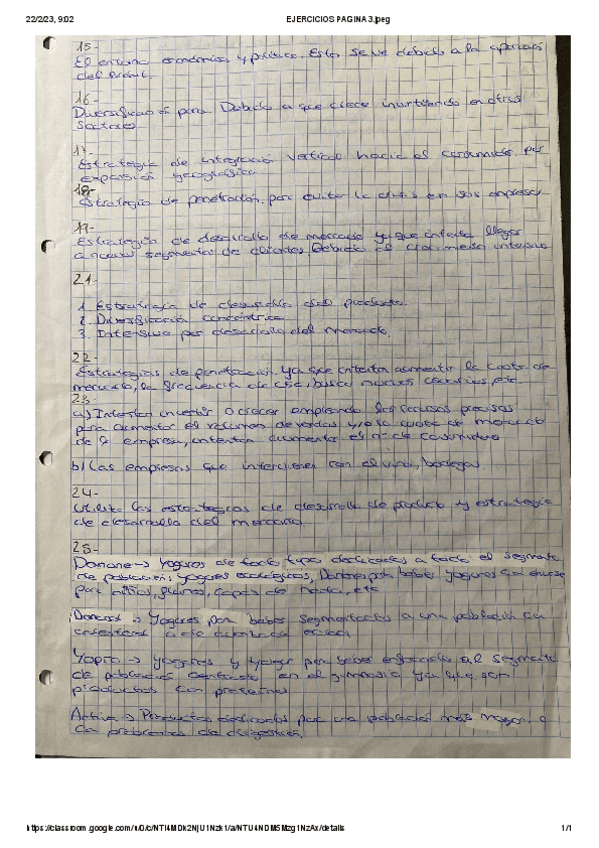 22/2/23, 9:02 EJERCICIOS PAGINA 3.jpeg
15-
El entorno económico y político. Esto se ve debido a la
del Brexit.
16-
Diversificación pura Debido a que crece invirtiendo en otros
sectores
17-
Estrategia de integración vertical hacia el consumidor por
expansión geográfica
18-
Estrategia de penetración, para evitar la crisis en sus empresas
19-
Estrategia de desarrollo de mercado ya que intenta llegar
a nuevos segmentos de clientes Debido al crecimiento intensivo
21-
1. Estrategia de desarrollo del producto
2. Diversificación concéntrica
3. Intensiva por desarrollo del mercado.
22-
Estrategias de penetración. Ya que intenta aumentar la cuota de
mercado, la frecuencia de uso, busca nuevos etc.
23-
a) Intentan invertir o crecer empleando los recursos precisos
para aumentar el volumen de ventas y/o la cuota de mercado
de la empresa, intentan aumentar el nº de consumidores
b) Las empresas que con el vino, bodegas
24-
Utiliza las estrategias de desarrollo de producto y estrategia
de desarrollo del mercado
25-
Danone → Yogures de todo tipo dedicados a todo el segmento
de población, yogures ecológicos, para beber yogures
para niños, griegos, copas de nata, etc
Danacol → Yogures para beber segmentados a una población con
colesterol
Yopro → yogures y yogur para beber enfocados al segmento
de población centrado en el gimnasio ya que son
productos con proteínas
Activia → Productos dedicados para una población más mayor o
con problemas de digestión.
https://classroom.google.com/u/0/c/NTI4MDk2NjU1Nzk1/a/NTU4NDM5Mzg1NzAx/details 1/1